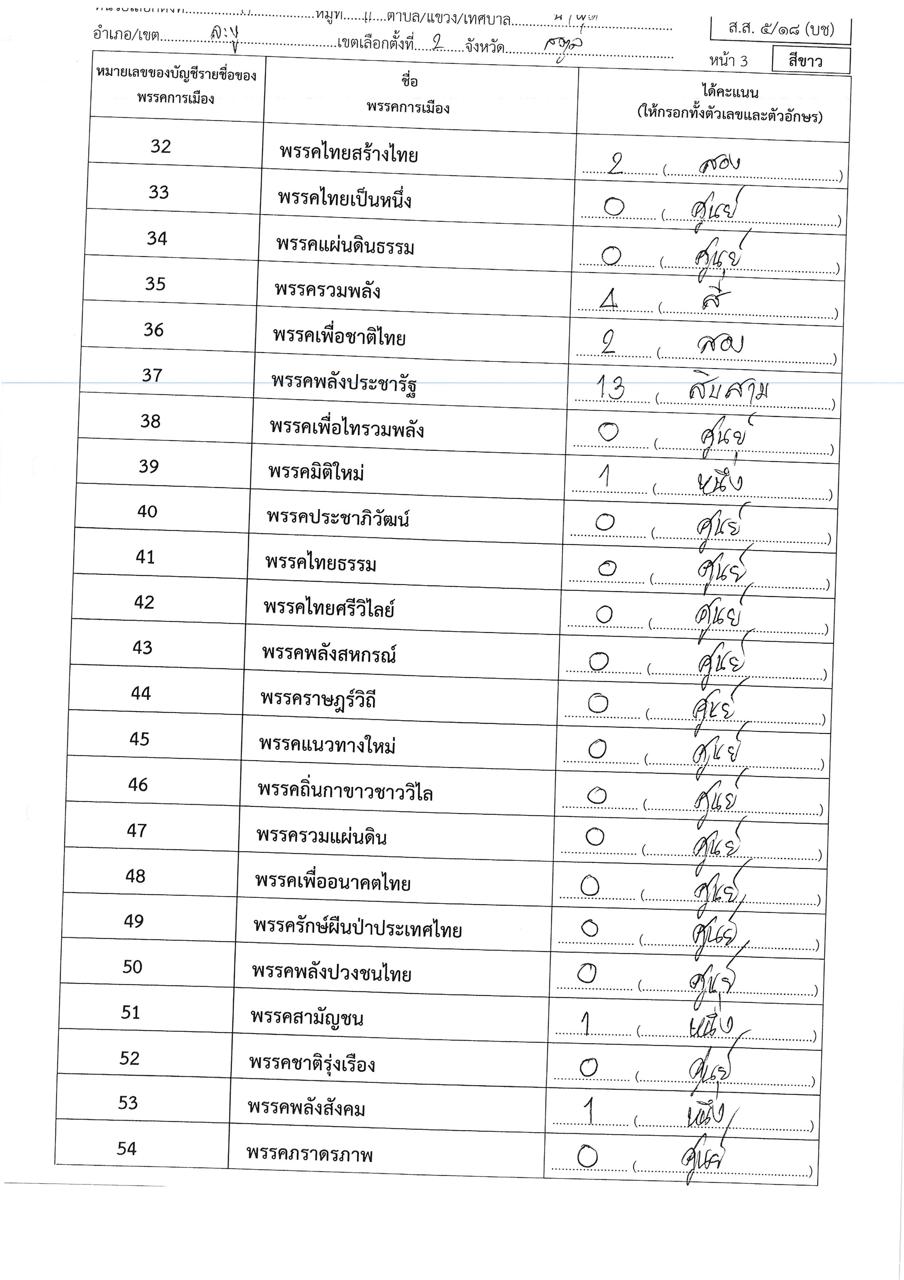 หมู่ที่ 11 ตำบล/แขวง/เทศบาล น้ำผุด
ส.ส. ๕/๑๘ (บช)
อำเภอ/เขต ละงู เขตเลือกตั้งที่ 2 จังหวัด สตูล
หน้า 3 สีขาว
หมายเลขของบัญชีรายชื่อของพรรคการเมือง ชื่อพรรคการเมือง ได้คะแนน (ให้กรอกทั้งตัวเลขและตัวอักษร)
32 พรรคไทยสร้างไทย 2 (สอง)
33 พรรคไทยเป็นหนึ่ง 0 (ศูนย์)
34 พรรคแผ่นดินธรรม 0 (ศูนย์)
35 พรรครวมพลัง 4 (สี่)
36 พรรคเพื่อชาติไทย 2 (สอง)
37 พรรคพลังประชารัฐ 13 (สิบสาม)
38 พรรคเพื่อไทรวมพลัง 0 (ศูนย์)
39 พรรคมิติใหม่ 1 (หนึ่ง)
40 พรรคประชาภิวัฒน์ 0 (ศูนย์)
41 พรรคไทยธรรม 0 (ศูนย์)
42 พรรคไทยศรีวิไลย์ 0 (ศูนย์)
43 พรรคพลังสหกรณ์ 0 (ศูนย์)
44 พรรคราษฎร์วิถี 0 (ศูนย์)
45 พรรคแนวทางใหม่ 0 (ศูนย์)
46 พรรคถิ่นกาขาวชาววิไล 0 (ศูนย์)
47 พรรครวมแผ่นดิน 0 (ศูนย์)
48 พรรคเพื่ออนาคตไทย 0 (ศูนย์)
49 พรรครักษ์ผืนป่าประเทศไทย 0 (ศูนย์)
50 พรรคพลังปวงชนไทย 0 (ศูนย์)
51 พรรคสามัญชน 1 (หนึ่ง)
52 พรรคชาติรุ่งเรือง 0 (ศูนย์)
53 พรรคพลังสังคม 1 (หนึ่ง)
54 พรรคภราดรภาพ 0 (ศูนย์)